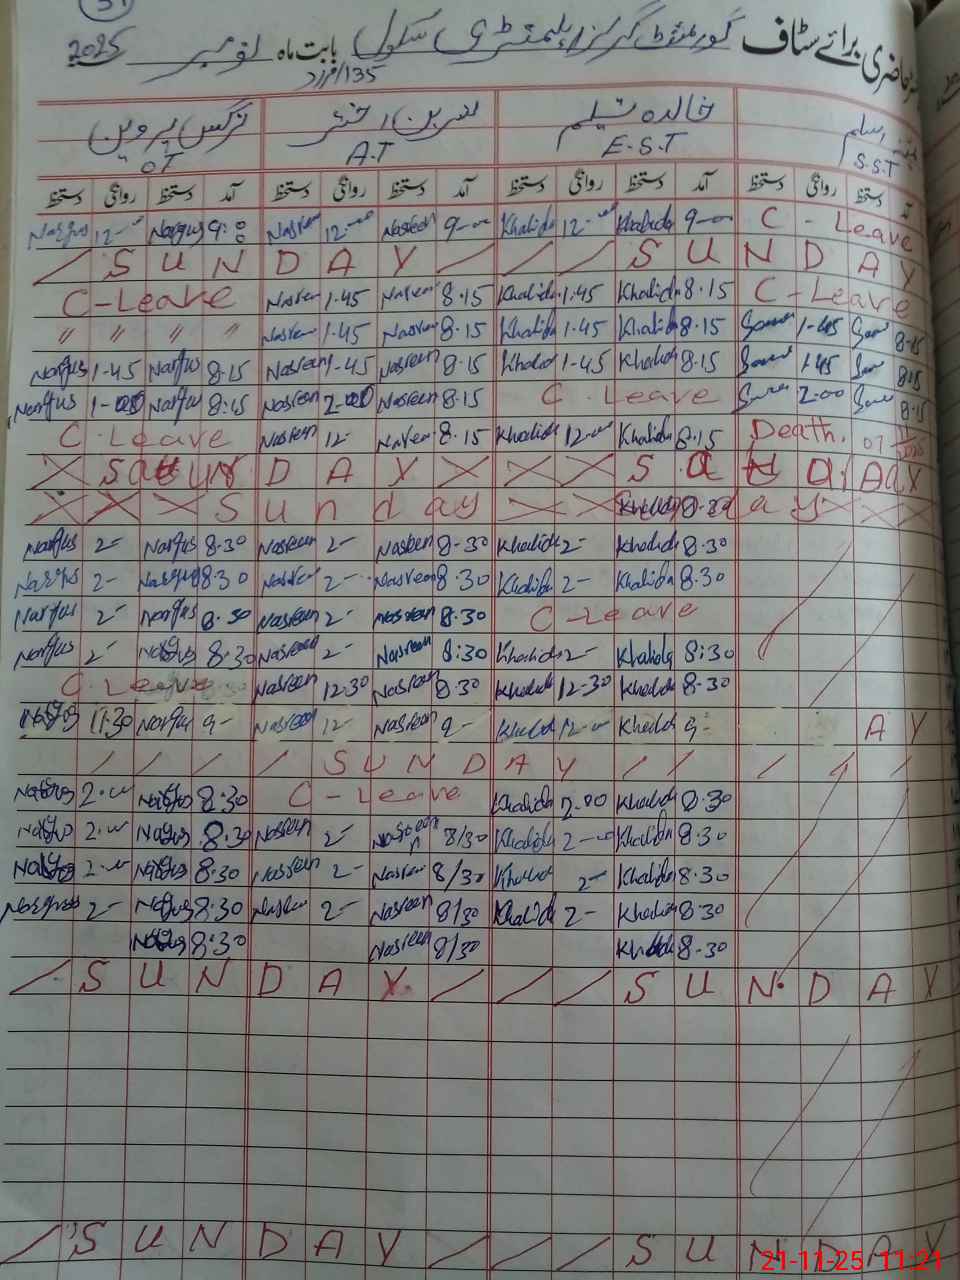 حاضری برائے سٹاف گورنمنٹ گرلز ایلیمنٹری سکول بابت ماہ نومبر 2025
135/مراد
خالدہ تسلیم نسرین اختر نرگس پروین
S.S.T E.S.T A.T OT
آمد دستخط روانگی دستخط آمد دستخط روانگی دستخط آمد دستخط روانگی دستخط آمد دستخط روانگی دستخط
Nargus 12-00 Nargus 9:00 Nasreen 12-00 Nasreen 9-00 Khalida 12-00 Khalida 9-00 C - Leave
/ S U N D A Y / / / S U N D A Y
C-Leave Nasreen 1-45 Nasreen 8.15 Khalida 1:45 Khalida 8.15 C-Leave
" " " " Nasreen 1-45 Nasreen 8.15 Khalida 1-45 Khalida 8.15 1-45 8-15
Nargus 1-45 Nargus 8.15 Nasreen 1-45 Nasreen 8.15 Khalida 1-45 Khalida 8.15 1.45 8.15
Nargus 1-00 Nargus 8:15 Nasreen 2-00 Nasreen 8.15 C. Leave 2-00 8-15
C. Leave Nasreen 12- Nasreen 8.15 Khalida 12-00 Khalida 8.15 Death. 07
X D A Y X X X
X X X S u n d a y X X Khalida day X X
Nargus 2- Nargus 8.30 Nasreen 2- Nasreen 8-30 Khalida 2- Khalida 8.30
Nargus 2- Nargus 8.30 Nasreen 2- Nasreen 8.30 Khalida 2- Khalida 8.30
Nargus 2- Nargus 8.30 Nasreen 2- Nasreen 8.30 C-Leave
Nargus 2- Nargus 8.30 Nasreen 2- Nasreen 8:30 Khalida 2- Khalida 8:30
C. Leave Nasreen 12.30 Nasreen 8.30 Khalida 12-30 Khalida 8-30
Nargus 11.30 Nargus 9- Nasreen 12- Nasreen 9- Khalida 12-00 Khalida 9- A Y
/ / / / S U N D A Y / / /
Nargus 2.00 Nargus 8.30 C-Leave Khalida 2.00 Khalida 8.30
Nargus 2.00 Nargus 8.30 Nasreen 2- Nasreen 8/30 Khalida 2-00 Khalida 8.30
Nargus 2.00 Nargus 8.30 Nasreen 2- Nasreen 8/30 Khalida 2- Khalida 8.30
Nargus 2- Nargus 8.30 Nasreen 2- Nasreen 8/30 Khalida 2- Khalida 8.30
Nargus 8:30 Nasreen 8/30 Khalida 8.30
/ S U N D A Y. / / / S U N D A Y
/ S U N D A Y / / / S U N D A Y
21-11-25 11:21